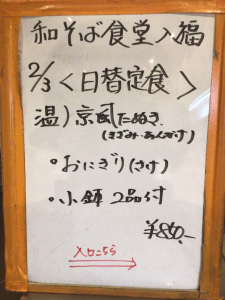 和そば食堂入福
2/3 <日替定食>
温)京風たぬき
(きざみ・あんかけ)
・おにぎり(さけ)
・小鉢 2品付
¥850.-
入口こちら